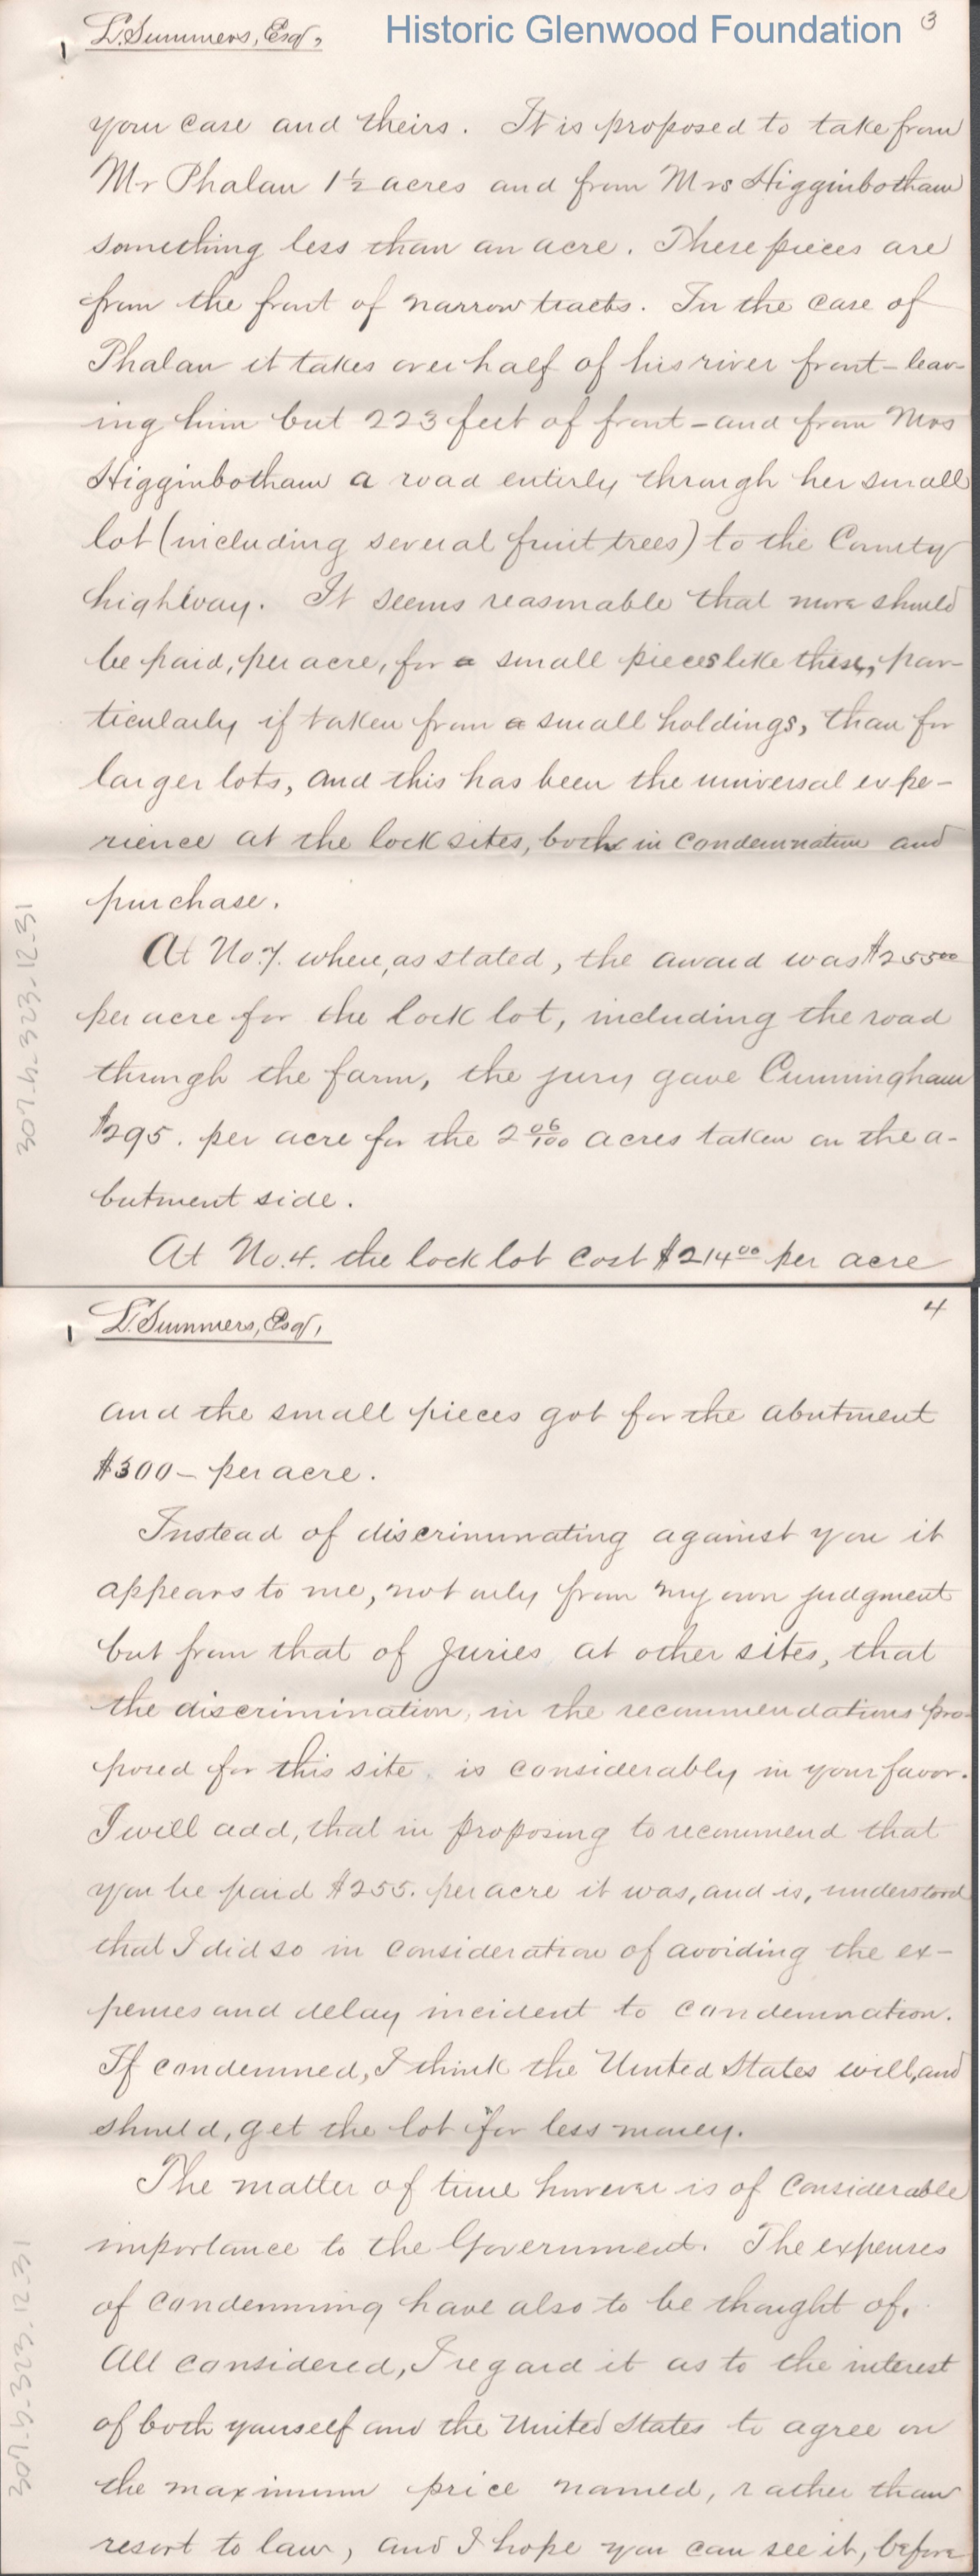 L. Summers, Esq,
Historic Glenwood Foundation
3
your case and theirs. It is proposed to take from
Mr Phalan 1½ acres and from Mrs Higginbotham
something less than an acre. These pieces are
from the front of narrow tracts. In the case of
Phalan it takes over half of his river front - leav-
ing him but 223 feet of front - and from Mrs
Higginbotham a road entirly through her small
lot (including several fruit trees) to the County
highway. It seems reasonable that more should
be paid, per acre, for small pieces like these, par-
ticularly if taken from small holdings, than for
larger lots, and this has been the universal expe-
rience at the lock sites, both in condemnation and
purchase.
At No. 7. where, as stated, the award was $255 00
per acre for the lock lot, including the road
through the farm, the jury gave Cunningham
$295. per acre for the 2 06/100 acres taken on the a-
butment side.
At No. 4. the lock lot cost $214 00 per acre
L. Summers, Esq,
4
and the small pieces got for the abutment
$300 - per acre.
Instead of discriminating against you it
appears to me, not only from my own judgment
but from that of juries at other sites, that
the discrimination, in the recommendations pro-
posed for this site, is considerably in your favor.
I will add, that in proposing to recommend that
you be paid $255. per acre it was, and is, understood
that I did so in consideration of avoiding the ex-
penses and delay incident to condemnation.
If condemned, I think the United States will, and
should, get the lot for less money.
The matter of time however is of considerable
importance to the Government. The expenses
of condemning have also to be thought of.
All considered, I regard it as to the interest
of both yourself and the United States to agree on
the maximum price named, rather than
resort to law, and I hope you can see it, before